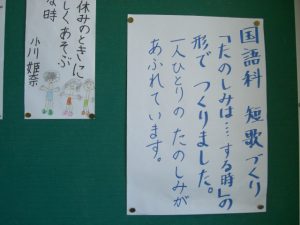 国語科 短歌づくり
「たのしみは…する時」の
形で つくりました。
一人ひとりの たのしみが
あふれています。
休みのときに
しくあそぶ
な時
小川 姫奈